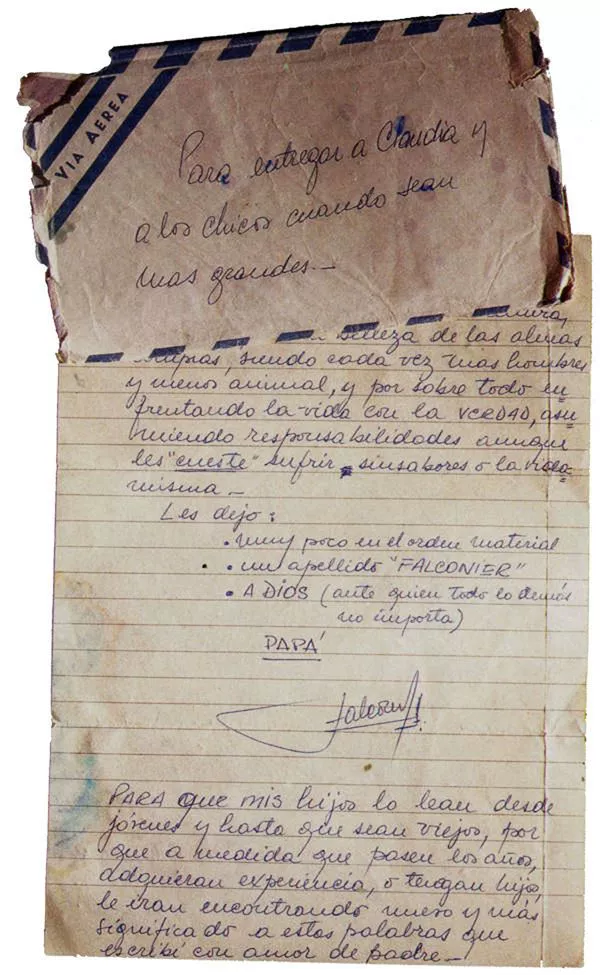 VIA AEREA
Para entregar a Claudia y
a los chicos cuando sean
mas grandes._
belleza de las almas
limpias, siendo cada vez mas hombres
y menos animal, y por sobre todo en=
frentando la vida con la VERDAD, asu=
miendo responsabilidades aunque
les "cueste" sufrir sinsabores o la vida
misma _
Les dejo:
• muy poco en el orden material
• un apellido "FALCONIER"
• A DIOS (ante quien todo lo demás
no importa)
PAPÁ
PARA que mis hijos lo lean desde
jóvenes y hasta que sean viejos, por
que a medida que pasen los años,
adquieran experiencia, o tengan hijos,
le iran encontrando nuevo y más
significado a estas palabras que
escribí con amor de padre._